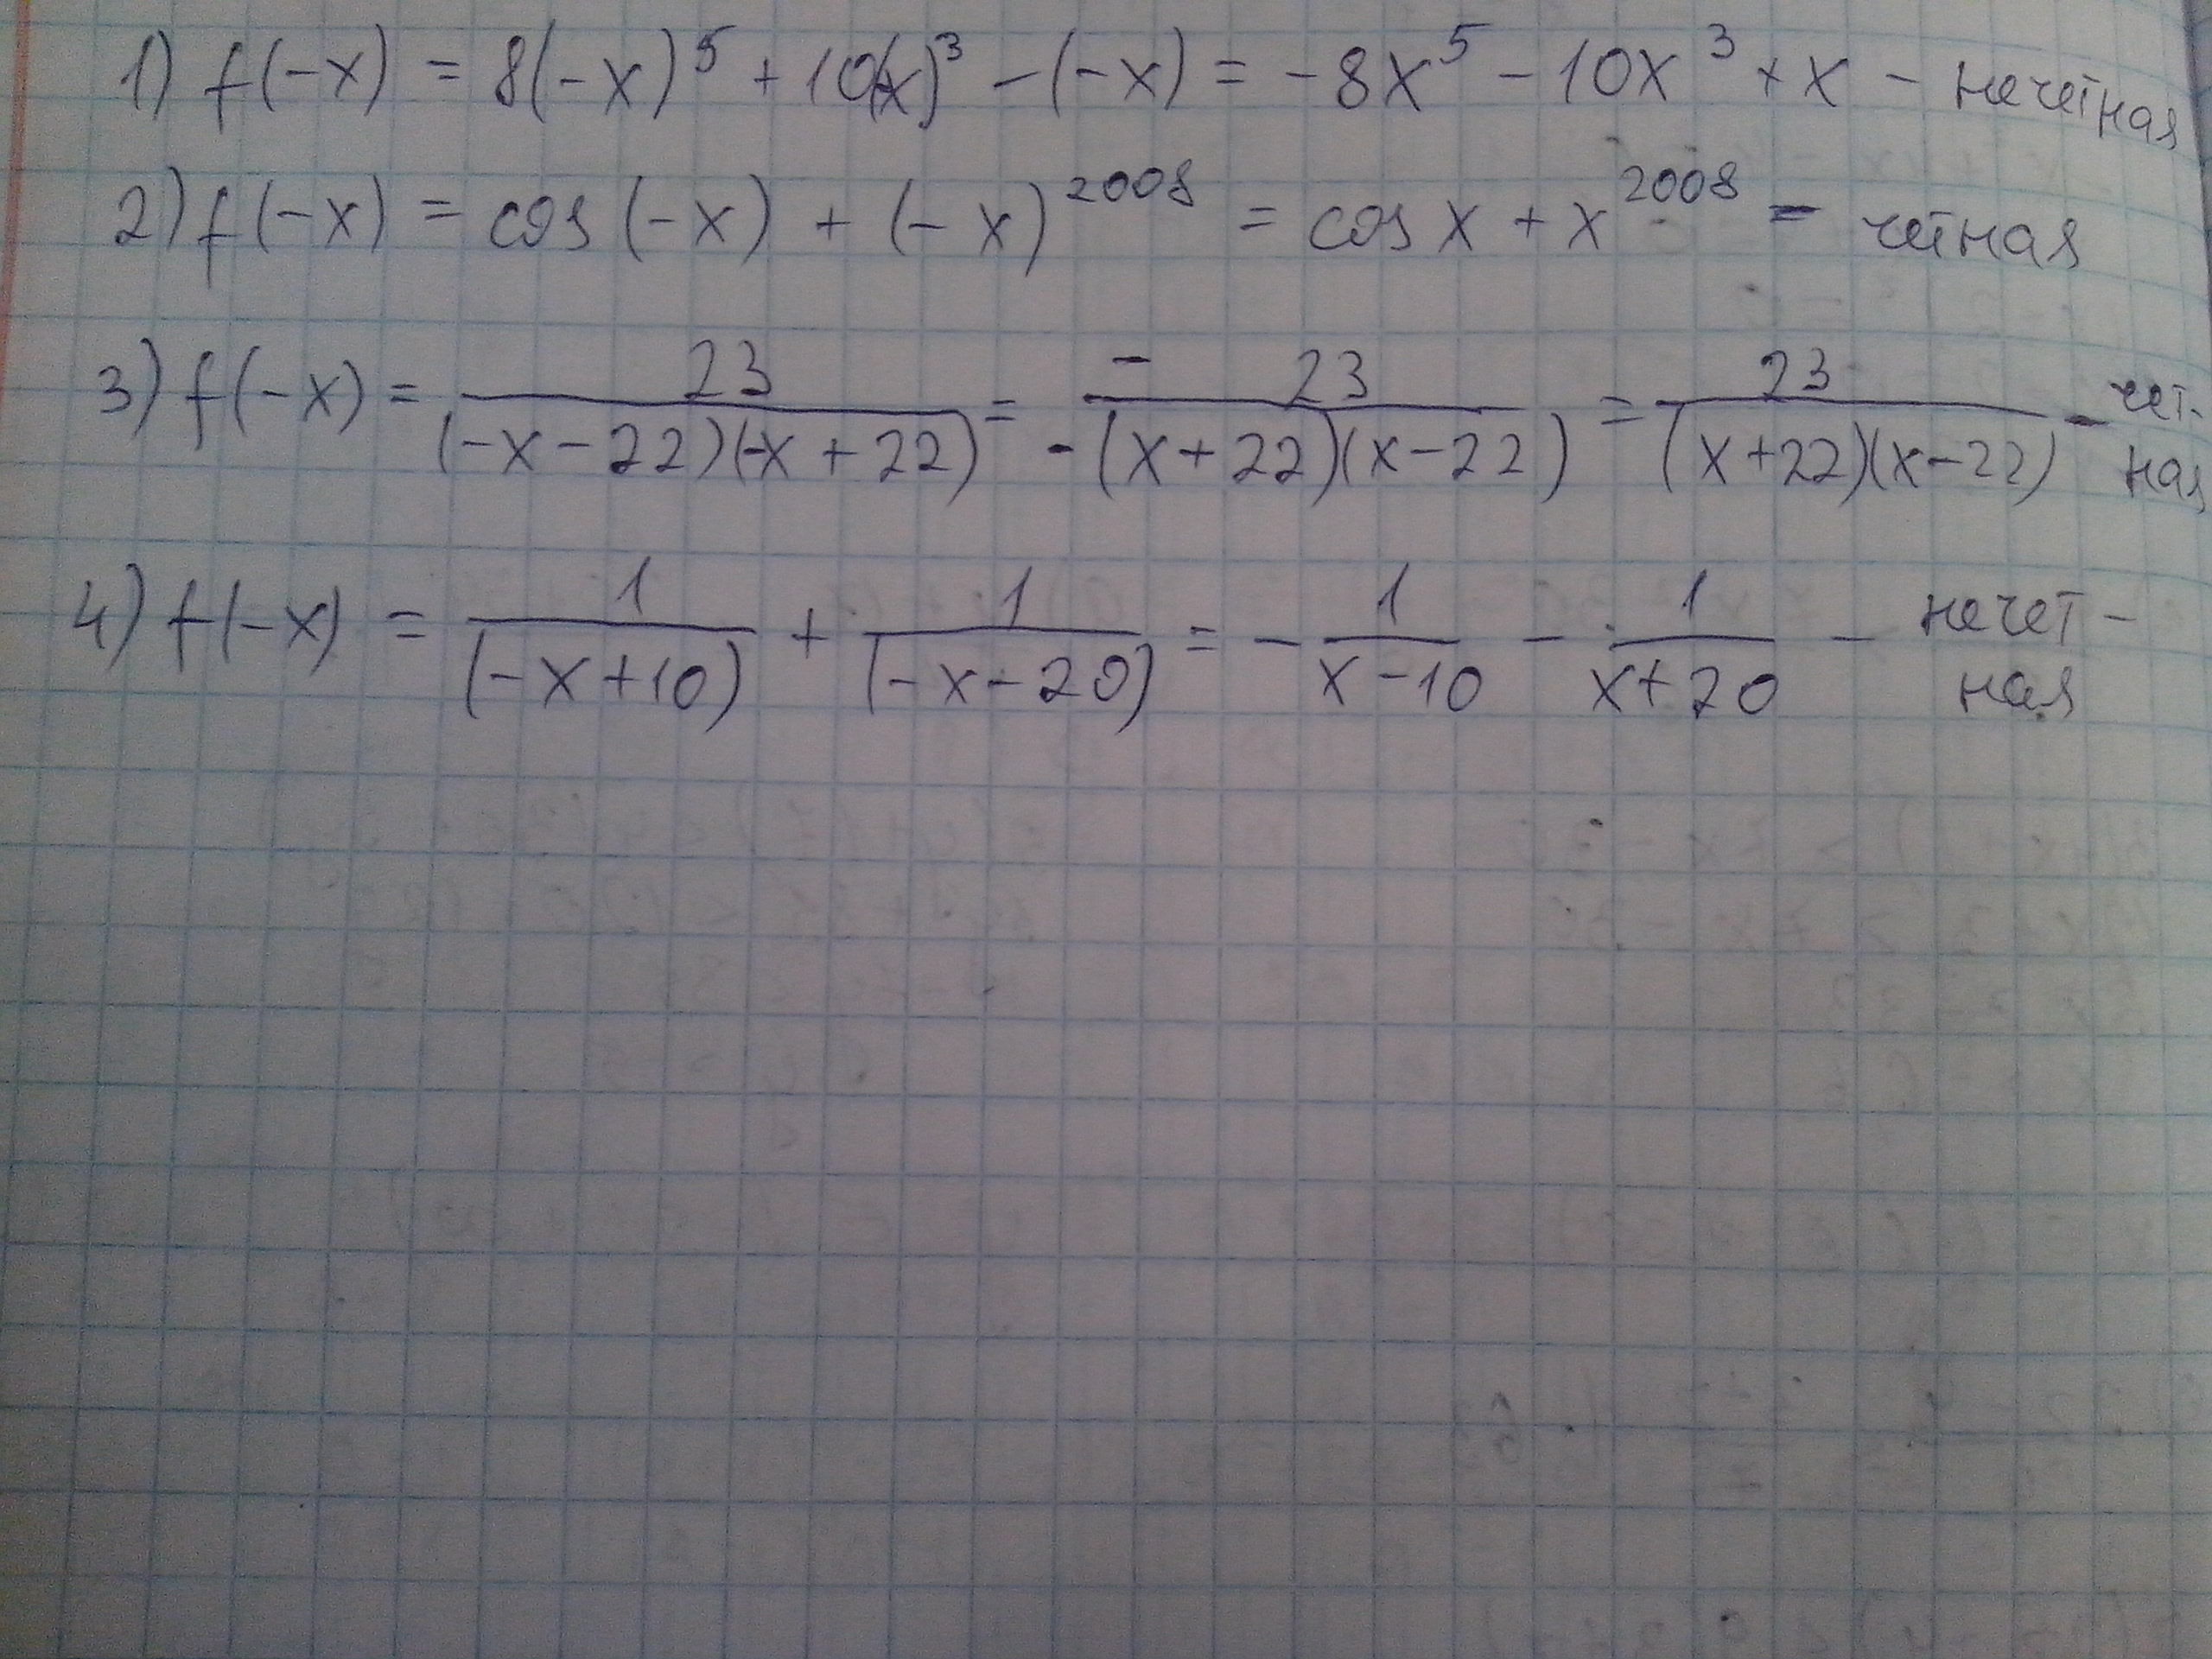 1) f(-x) = 8(-x)⁵ + 10(-x)³ - (-x) = -8x⁵ - 10x³ + x - нечетная
2) f(-x) = cos(-x) + (-x)²⁰⁰⁸ = cos x + x²⁰⁰⁸ - четная
3) f(-x) = 23/((-x-22)(-x+22)) = -23/(-(x+22)(x-22)) = 23/((x+22)(x-22)) - чет-
ная
4) f(-x) = 1/(-x+10) + 1/(-x-20) = -1/(x-10) - 1/(x+20) - нечет-
ная